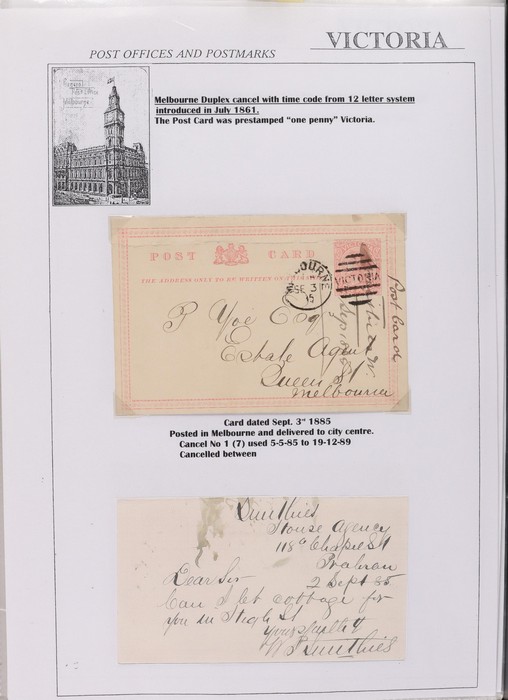 VICTORIA
POST OFFICES AND POSTMARKS
General
Post Office
Melbourne
Melbourne Duplex cancel with time code from 12 letter system
introduced in July 1861.
The Post Card was prestamped “one penny” Victoria.
POST CARD
THE ADDRESS ONLY TO BE WRITTEN ON THIS
OURNE
SE 3
VICTORIA
Post Card
P Yoe Esq
Estate Agent
Queen St
Melbourne
Card dated Sept. 3rd 1885
Posted in Melbourne and delivered to city centre.
Cancel No 1 (7) used 5-5-85 to 19-12-89
Cancelled between
House Agency
118a Chapel St
Prahran
2 Sept 85
Dear Sir
Can I let cottage for
you in High St
Yours truly